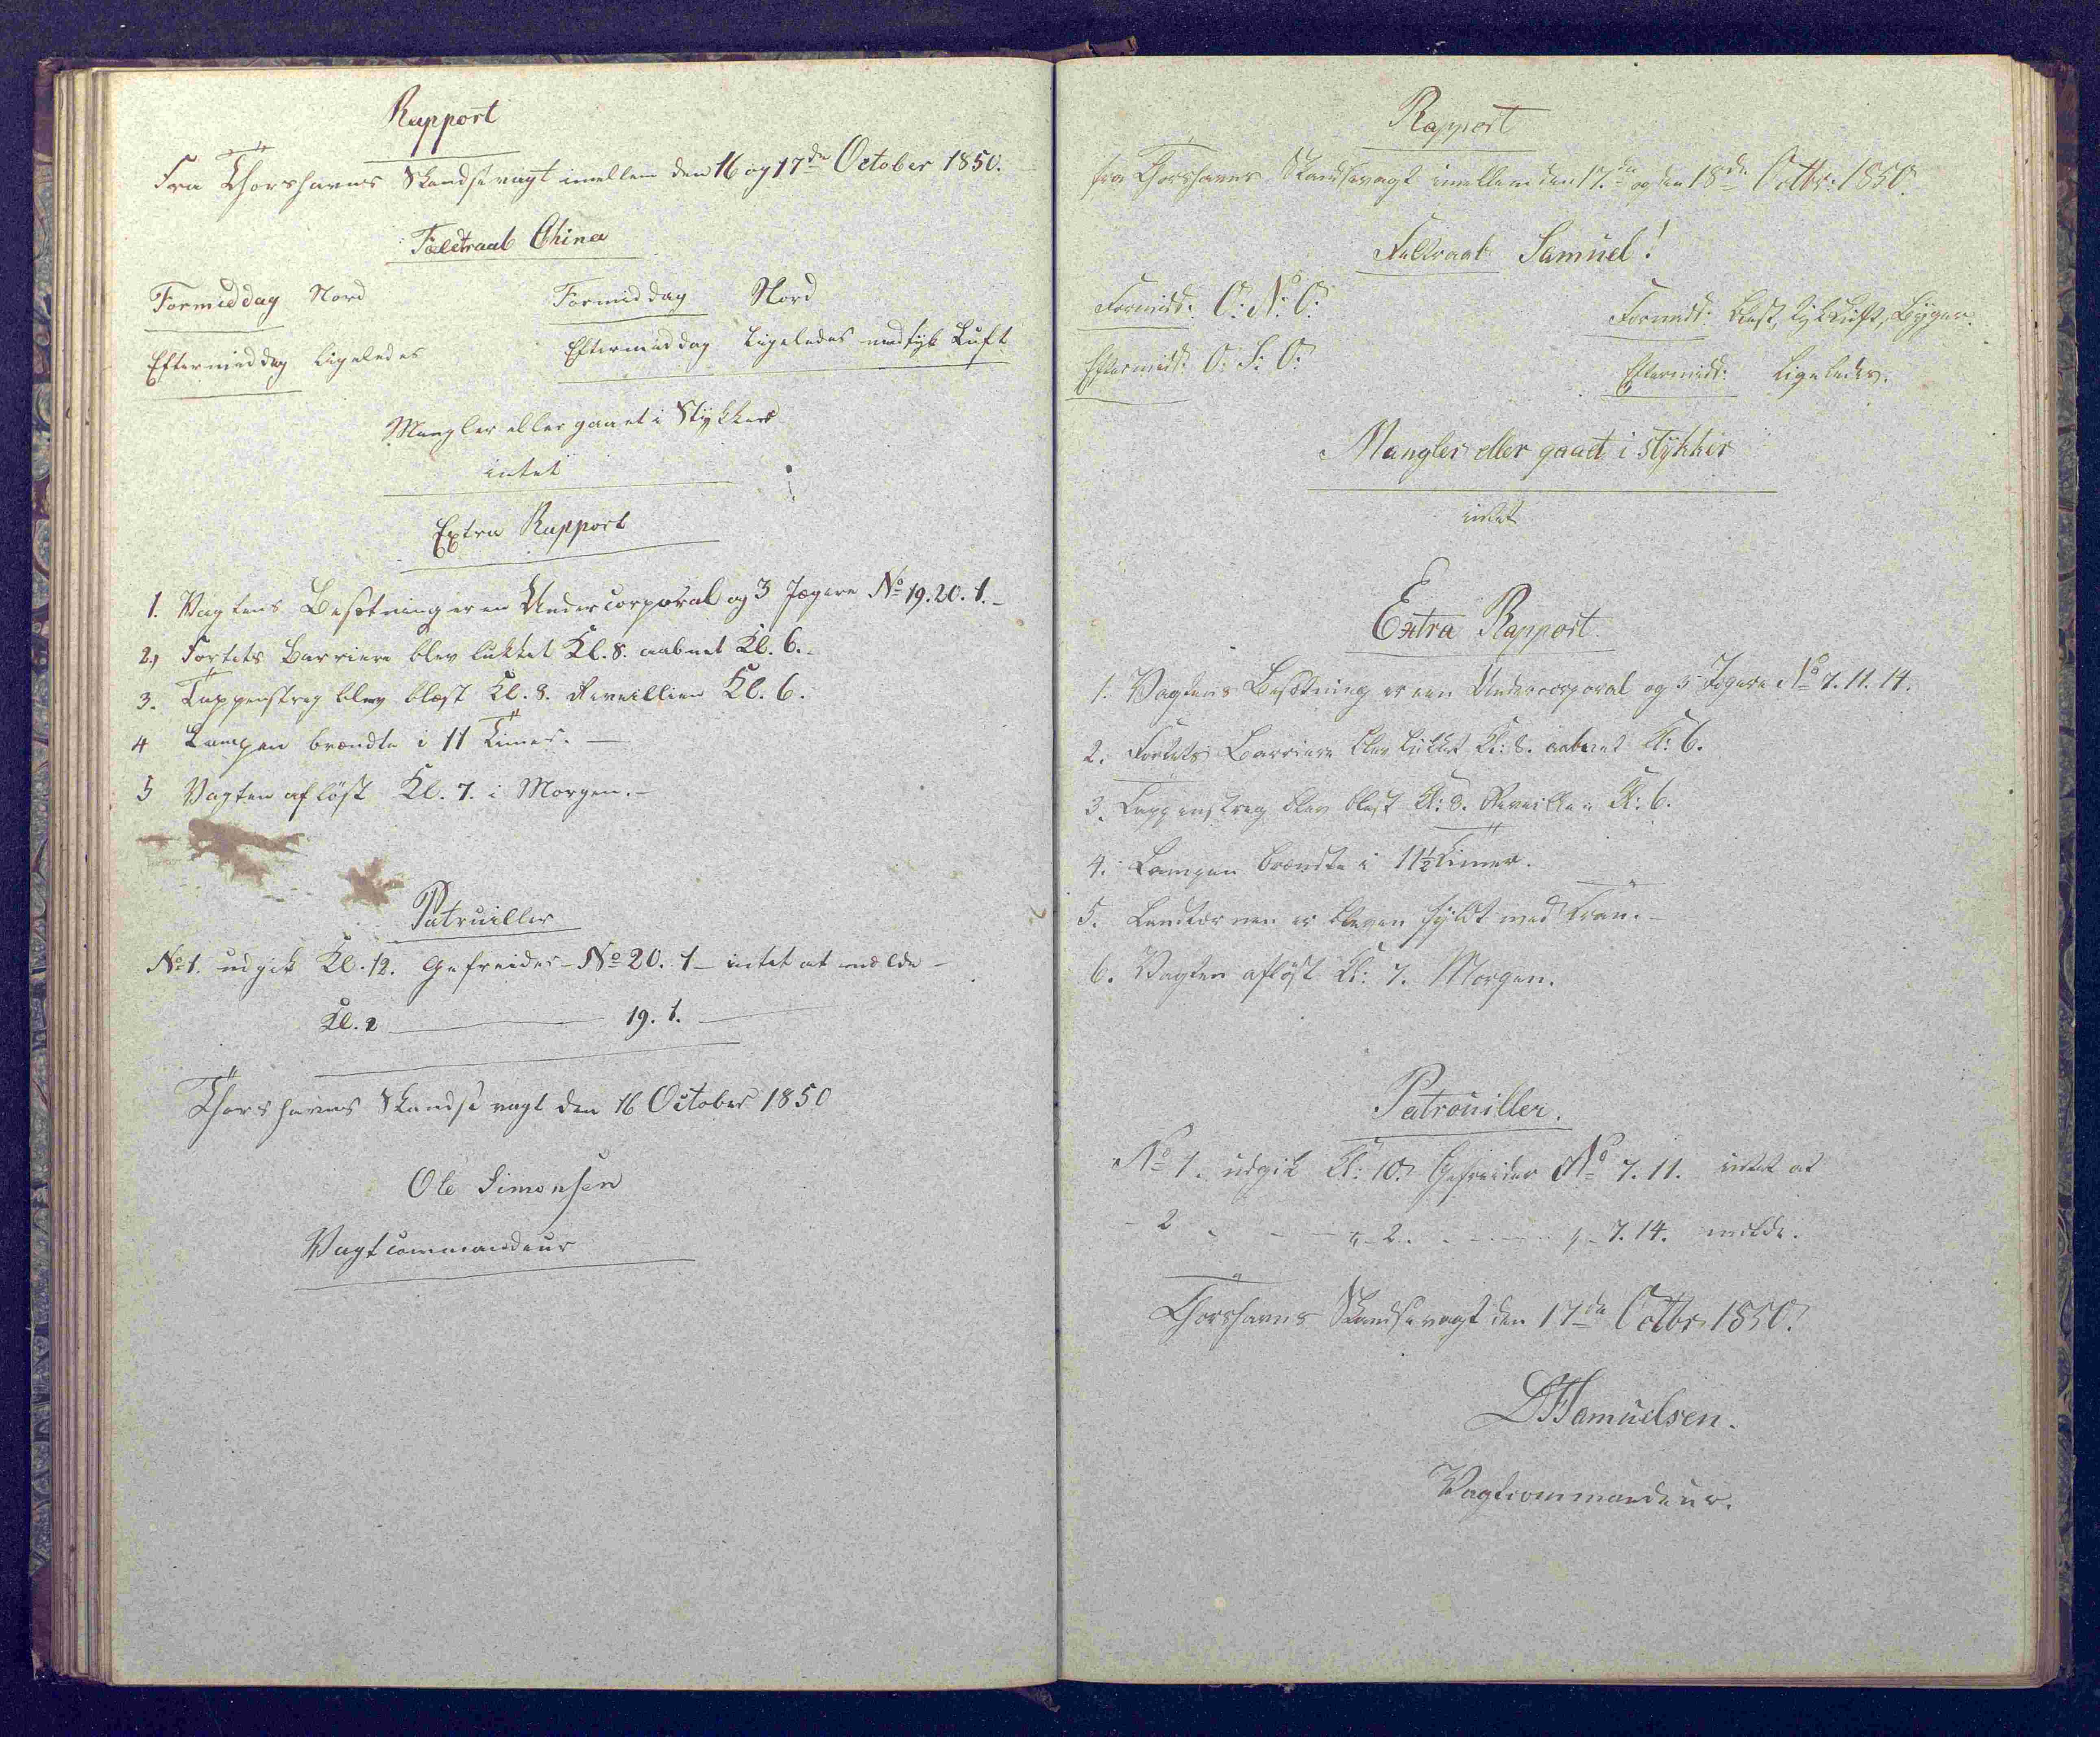 Rapport
Fra Thorshavns Skandsevagt imellem den 16 og 17de October 1850.
Feldtraab China
Formiddag Nord
Formiddag Nord
Eftermiddag ligeledes
Eftermiddag ligeledes med tyk Luft
Mangler eller gaaet i Stykker
intet
Extra Rapport
1. Vagtens Besætning er en Undercorporal og 3 Jægere No 19. 20. 1.
2, Fortets Barriere blev lukket Kl. 8. aabnet Kl. 6.
3. Tappenstreg blev blæst Kl. 8. Reveillien Kl. 6.
4 Lampen brændte i 11 Timer.
5 Vagten afløst Kl. 7. i Morgen.
Patruiller
No 1. udgik Kl. 12. Gefreider No 20. 1 intet at melde
Kl. 2 19. 1.
Thorshavns Skandsevagt den 16 October 1850
Ole Simonsen
Vagtcommandeur
Rapport
fra Thorshavns Skandsevagt imellem den 17.de og den 18de Octbr: 1850.
Feltraab Samuel!
Formidd: O: N: O:
Formidd: blæst, tyk Luft, Byger.
Eftermidd: O: S: O:
Eftermidd: ligeledes.
Mangler eller gaaet i stykker
intet
Extra Rapport.
1. Vagtens Besætning er een Undercorporal og 3 Jægere No 7. 11. 14.
2. Fortets Barriere blev lukket Kl: 8. aabnet Kl: 6.
3. Tappenstreg blev blæst Kl: 8. Reveillen Kl: 6.
4. Lampen brændte i 11½ Timer.
5. Landtærnen er bleven fyldt med Tran.
6. Vagten afløst Kl: 7. Morgen.
Patrouiller.
No 1. udgik Kl: 10. Gefreider No 7. 11. intet at
- 2 - - - " - 2. - - - " - 7. 14. melde.
Thorshavns Skandsevagt den 17de Octbr 1850.
Samuelsen.
Vagtcommandeur.